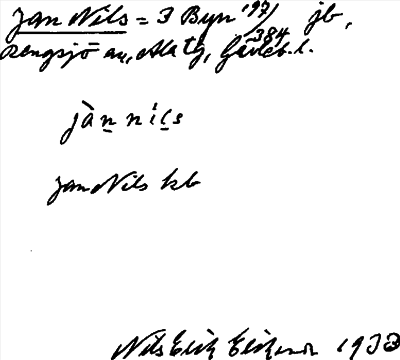 Jan Nils = 3 Byn 197/384 jb,
Rengsjö sn, Ala tg, Gävleb. l.
jàn nils
Jan Nils kb
Nils Erik Erikson 1933